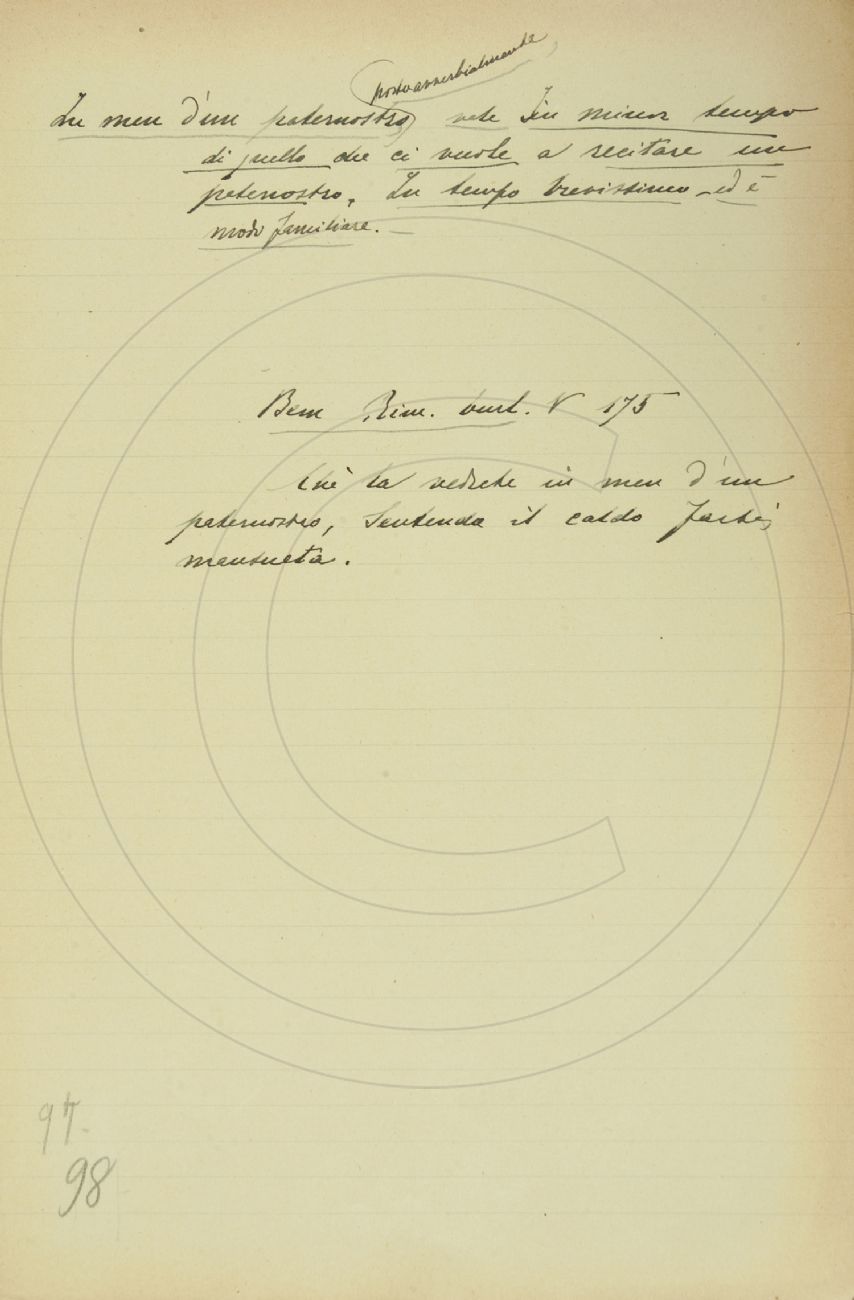 posto avverbialmente
In men d'un paternostro vale In minor tempo
di quello che ci vuole a recitare un
paternostro, In tempo brevissimo – ed è
modo familiare. –
Bern Rim. burl. V 175
Chè la vedrete in men d'un
paternostro, Sentendo il caldo, farsi
mansueta.
97.
98